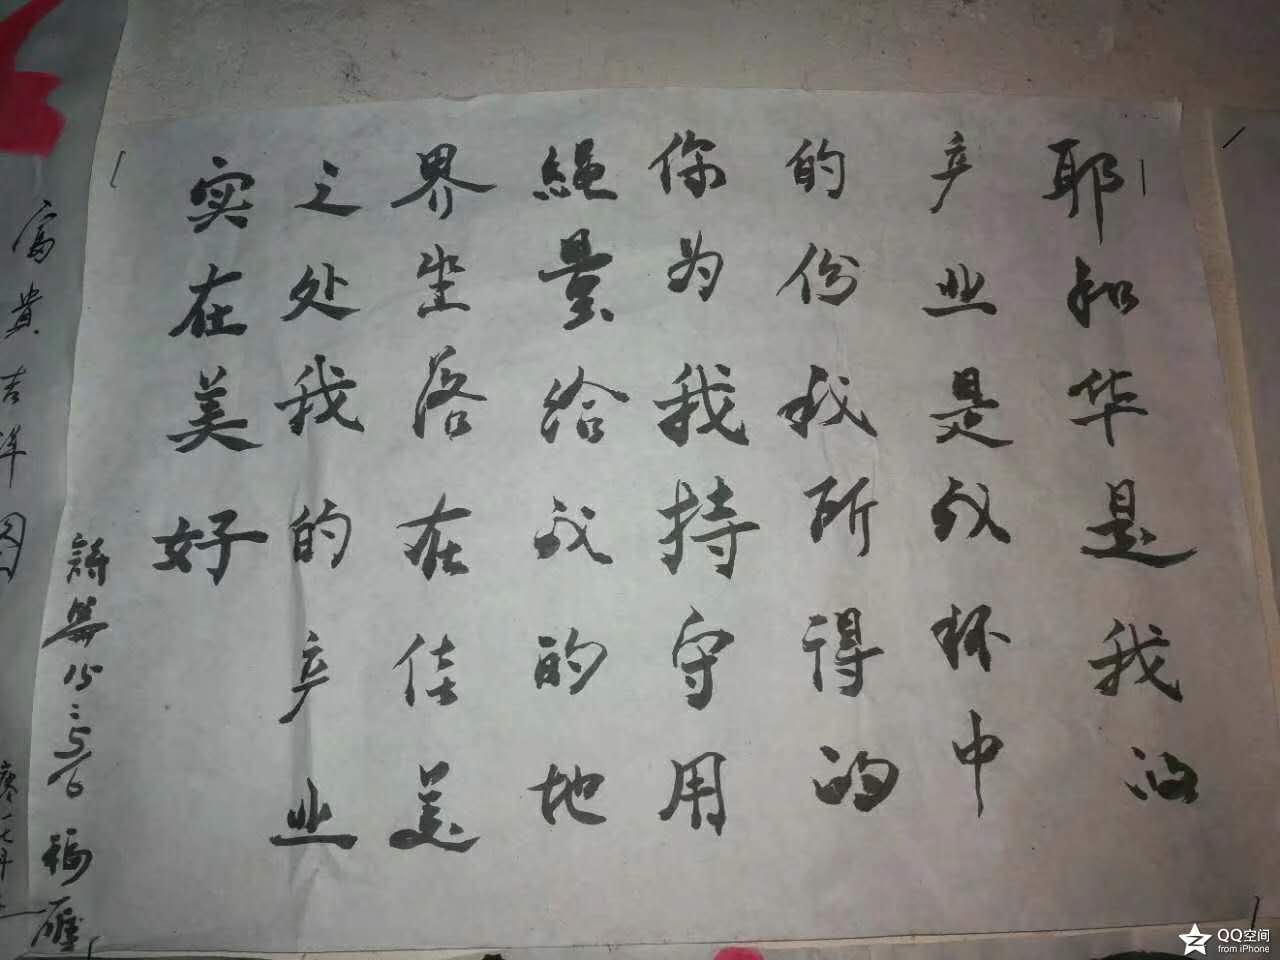 耶和华是我的
产业是我杯中
的份我所得的
你为我持守用
绳量给我的地
界坐落在佳美
之处我的产业
实在美好
詩篇15:5/6
富貴吉祥图
QQ空间
from iPhone